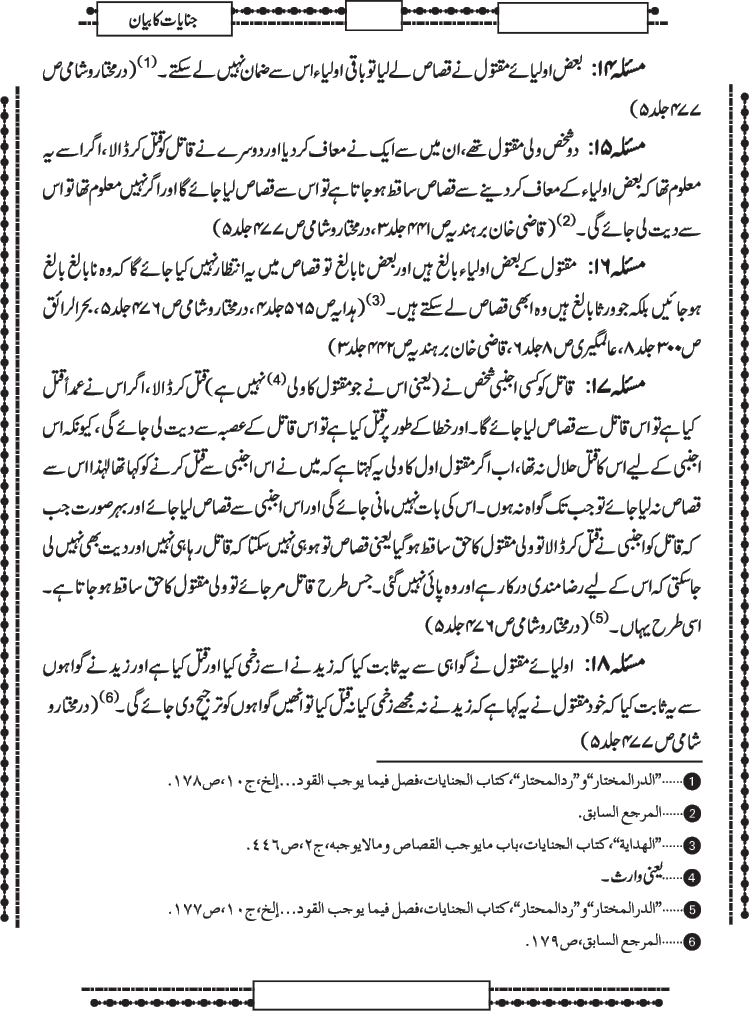 جنایات کا بیان
مسئلہ ۱۴: بعض اولیائے مقتول نے قصاص لے لیا تو باقی اولیاء اس سے ضمان نہیں لے سکتے۔(1) (درمختار و شامی ص
۴۷۷ جلد ۵)
مسئلہ ۱۵: دو شخص ولی مقتول تھے، ان میں سے ایک نے معاف کر دیا اور دوسرے نے قاتل کو قتل کر ڈالا، اگر اسے یہ
معلوم تھا کہ بعض اولیاء کے معاف کر دینے سے قصاص ساقط ہو جاتا ہے تو اس سے قصاص لیا جائے گا اور اگر نہیں معلوم تھا تو اس
سے دیت لی جائے گی۔(2) (قاضی خان بر ہندیہ ص ۴۴۱ جلد ۳، درمختار و شامی ص ۴۷۷ جلد ۵)
مسئلہ ۱۶: مقتول کے بعض اولیاء بالغ ہیں اور بعض نابالغ تو قصاص میں یہ انتظار نہیں کیا جائے گا کہ وہ نابالغ بالغ
ہو جائیں بلکہ جو ورثا بالغ ہیں وہ ابھی قصاص لے سکتے ہیں۔(3) (ہدایہ ص ۵۶۵ جلد ۴، درمختار و شامی ص ۴۷۶ جلد ۵، بحرالرائق
ص ۳۰۰ جلد ۸، عالمگیری ص ۸ جلد ۶، قاضی خان بر ہندیہ ص ۴۴۲ جلد ۳)
مسئلہ ۱۷: قاتل کو کسی اجنبی شخص نے (یعنی اس نے جو مقتول کا ولی(4) نہیں ہے) قتل کر ڈالا، اگر اس نے عمداً قتل
کیا ہے تو اس قاتل سے قصاص لیا جائے گا۔ اور خطا کے طور پر قتل کیا ہے تو اس قاتل کے عصبہ سے دیت لی جائے گی، کیونکہ اس
اجنبی کے لیے اس کا قتل حلال نہ تھا، اب اگر مقتول اول کا ولی یہ کہتا ہے کہ میں نے اس اجنبی سے قتل کرنے کو کہا تھا لہٰذا اس سے
قصاص نہ لیا جائے تو جب تک گواہ نہ ہوں۔ اس کی بات نہیں مانی جائے گی اور اس اجنبی سے قصاص لیا جائے اور بہر صورت جب
کہ قاتل کو اجنبی نے قتل کر ڈالا تو ولی مقتول کا حق ساقط ہو گیا یعنی قصاص تو ہو ہی نہیں سکتا کہ قاتل رہا ہی نہیں اور دیت بھی نہیں لی
جا سکتی کہ اس کے لیے رضا مندی درکار ہے اور وہ پائی نہیں گئی۔ جس طرح قاتل مر جائے تو ولی مقتول کا حق ساقط ہو جاتا ہے۔
اسی طرح یہاں۔(5) (درمختار و شامی ص ۴۷۶ جلد ۵)
مسئلہ ۱۸: اولیائے مقتول نے گواہی سے یہ ثابت کیا کہ زید نے اسے زخمی کیا اور قتل کیا ہے اور زید نے گواہوں
سے یہ ثابت کیا کہ خود مقتول نے یہ کہا ہے کہ زید نے نہ مجھے زخمی کیا نہ قتل کیا تو انھیں گواہوں کو ترجیح دی جائے گی۔(6) (درمختار و
شامی ص ۴۷۷ جلد ۵)
1......”الدرالمختار“و”ردالمحتار“،کتاب الجنایات،فصل فیما یوجب القود...إلخ،ج۱۰،ص۱۷۸.
2......المرجع السابق.
3......”الهدایة“،کتاب الجنایات،باب مایوجب القصاص ومالایوجبه،ج۲،ص٤٤٦.
4......یعنی وارث۔
5......”الدرالمختار“و”ردالمحتار“،کتاب الجنایات،فصل فیما یوجب القود...إلخ،ج۱۰،ص۱۷۷.
6......المرجع السابق،ص۱۷۹.